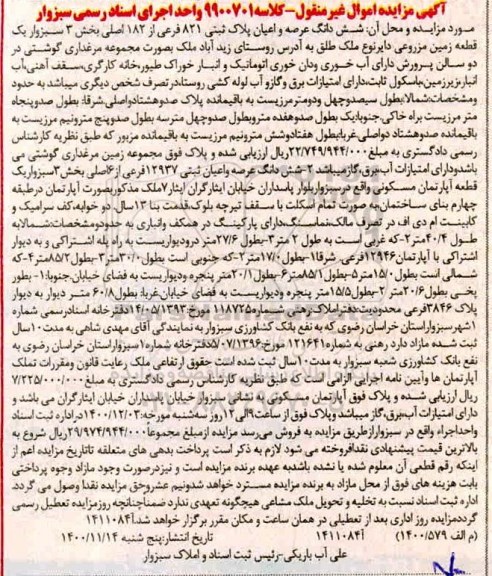 آگهی مزایده اموال غیر منقول-کلاسه ۹۹۰۰۷۰۱ واحد اجرای اسناد رسمی سبزوار
مورد مزایده و محل آن: شش دانگ عرصه و اعیان پلاک ثبتی ۸۲۱ فرعی از ۱۸۲ اصلی بخش ۳ سبزوار یک
قطعه زمین مزروعی دایر نوع ملک طلق به آدرس روستای زید آباد ملک بصورت مجموعه مرغداری گوشتی در
دو سالن پرورش دارای آب خوری ودان خوری اتوماتیک و انبار خوراک طیور،خانه کارگری،سقف آهنی،آب
انبار،زیرزمین،باسکول ثابت،دارای امتیازات برق و گازو آب لوله کشی روستا،در تصرف شخص دیگری میباشد به حدود
ومشخصات:شمالا:بطول سیصدوچهل ودومترمرزیست به باقیمانده پلاک صدوهشتادواصلی،شرقا: بطول صدوپنجاه
متر مرزیست براه خاکی،جنوبا:یک بطول صدوهفده مترو بطول صدوچهل مترسه بطول صدوپنج مترونیم مرزیست به
باقیمانده صدوهشتاد دواصلی،غربا:بطول هفتادوشش مترونیم مرزیست به باقیمانده مزبور که طبق نظریه کارشناس
رسمی دادگستری به مبلغ ۲۲/۷۴۹/۹۴۴/۰۰۰ریال ارزیابی شده و پلاک فوق مجموعه زمین مرغداری گوشتی می
باشدودارای امتیازات آب،برق،گازمیباشد ۲-شش دانگ عرصه واعیان ثبتی ۱۲۹۳۷فرعی از ۶اصلی بخش۳سبزواریک
قطعه آپارتمان مسکونی واقع درسبزواربلوار پاسداران خیابان ایثارگران ایثار ۷ملک مذکوربصورت آپارتمان درطبقه
چهارم بنای ساختمان،به صورت تمام اسکلت با سقف تیرچه بلوک،قدمت بنا ۱۳سال،دو خوابه،کف سرامیک و
کابینت ام دی اف در تصرف مالک،نماسنگ،دارای پارکینگ در همکف وانباری به حدودومشخصات:شمالابه
طول ۴۰/۴متر۲-که غربی است به طول ۲ متر۳-بطول ۲۷/۶متر درودیواریست به راه پله اشتراکی و به دیوار
اشتراکی با آپارتمان۱۲۹۴۶فرعی. شرقا۱-بطول۱۷/۰متر۲-که جنوبی است بطول۳۰/۰متر۳-بطول۸۵/۲متر۴-که
شمالی است بطول۱۵/۰متر۵-بطول۸۵/۱متر۶-بطول۲۰/۱متر پنجره ودیواریست به فضای خیابان،جنوبا:۱- بطور
پخی بطول۲۰/۶متر ۲-بطول۱۵/۵متر پنجره ودیواریست به فضای خیابان غربا: بطول۶۰/۸ متر دیوار به دیوار
پلاک ۳۸۴۶فرعی محدودیت دفتراملاک رهنی شماره۱۱۸۷۲۵ مورخ۱۴/۰۵/۱۳۹۳دفترخانه اسنادرسمی شماره
۱شهرسبزواراستان خراسان رضوی که به نفع بانک کشاورزی سبزوار به نمایندگی آقای مهدی شاهی به مدت۱۰سال
ثبت شده مازاد دارد رهنی به شماره۱۲۱۶۴۱ مورخ۵/۰۷/۱۳۹۶دفترخانه شماره۱سبزواراستان خراسان رضوی به
نفع بانک کشاورزی شعبه سبزوار به مدت۱۰سال ثبت شده است حقوق ارتفاعی ملک رعایت قانون ومقررات تملک
آپارتمان ها وآیین نامه اجرایی الزامی است که طبق نظریه کارشناس رسمی دادگستری به مبلغ۷/۲۲۵/۰۰۰/۰۰۰
ریال ارزیابی شده و پلاک فوق آپارتمان مسکونی به نشانی سبزوار خیابان پاسداران خیابان ایثارگران می باشد و
دارای امتیازات آب،برق،گاز میباشد وپلاک فوق از ساعت۹الی۱۲روز سه‌شنبه مورخه:۱۴۰۰/۱۲/۰۳دراداره ثبت اسناد
واحداجراء واقع در سبزواراز طریق مزایده به فروش می‌رسد مزایده ازمبلغ مجموعاً ۲۹/۹۷۴/۹۴۴/۰۰۰ریال شروع به
بالاترین قیمت پیشنهادی نقدافروخته می شود لازم به ذکر است پرداخت بدهی های متعلقه تاتاریخ مزایده اعم از
اینکه رقم قطعی آن معلوم شده یا نشده باشدبه عهده برنده مزایده است و نیزدرصورت وجود مازاد وجوه پرداختی
بابت هزینه های فوق از محل مازاد به برنده مزایده مسترد خواهد شدونیم عشروحق مزایده نقدا وصول می گردد.
اداره ثبت اسناد نسبت به تخلیه و تحویل ملک مشاعی هیچگونه تعهدی ندارد ضمناچنانچه روزمزایده تعطیل رسمی
گرددمزایده روز اداری بعد از تعطیلی در همان ساعت و مکان مقرر برگزار خواهد شد.۱۴۱۱۰۸۴آ
(م الف ۱۴۰۰/۵۷۹) ۱۴۱۱۰۸۴آ تاریخ انتشار:پنج شنبه ۱۴۰۰/۱۱/۱۴
علی آب باریکی-رئیس ثبت اسناد و املاک سبزوار